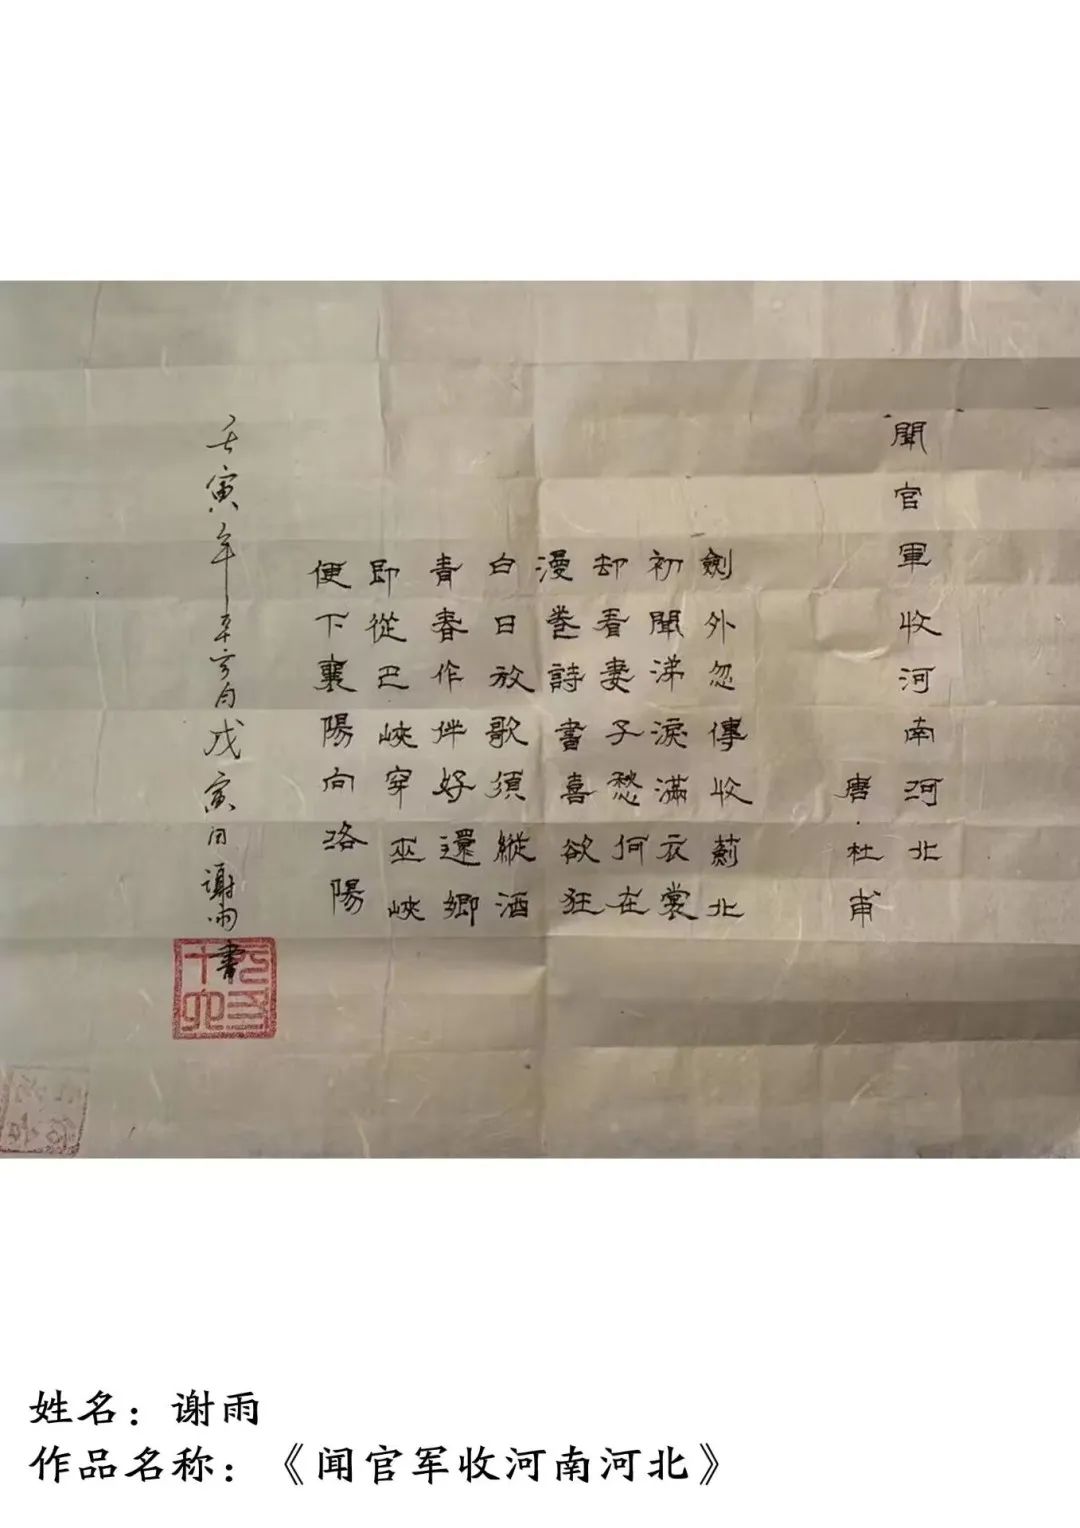 聞官軍收河南河北
唐·杜甫
劍外忽傳收薊北
初聞涕淚滿衣裳
却看妻子愁何在
漫卷詩書喜欲狂
白日放歌須縱酒
青春作伴好還鄉
即從巴峽穿巫峽
便下襄陽向洛陽
壬寅年辛亥月戊寅日謝雨書
姓名：谢雨
作品名称：《闻官军收河南河北》